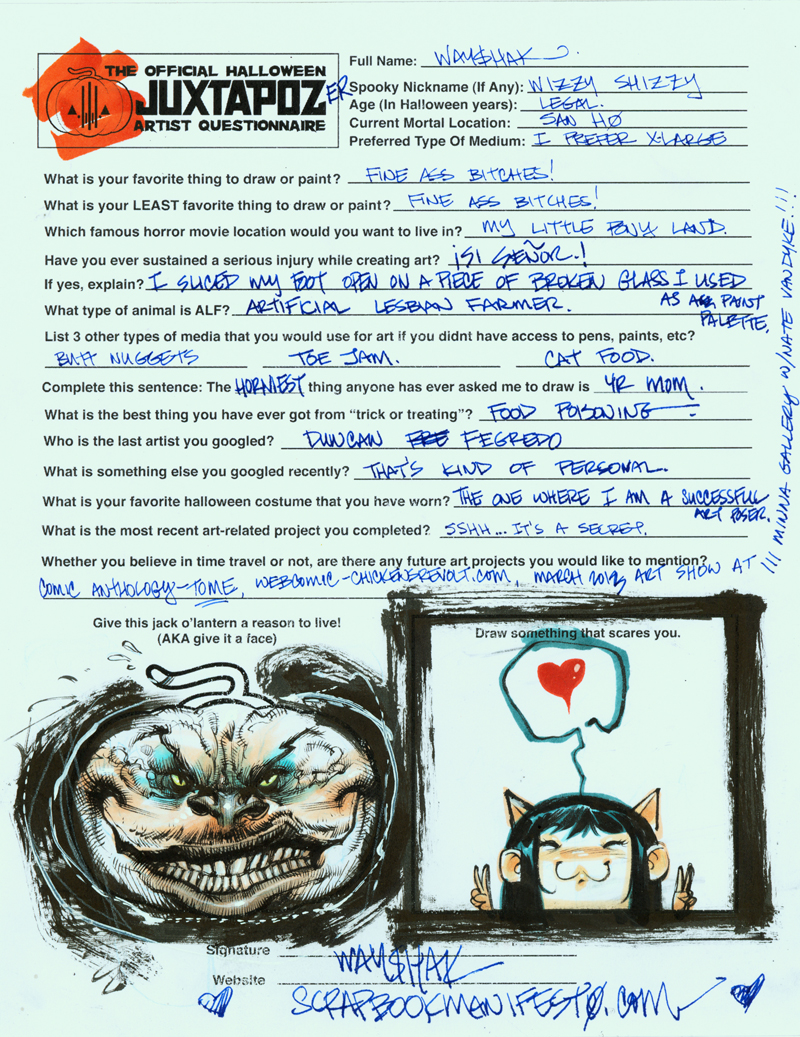 THE OFFICIAL HALLOWEEN
JUXTAPOZER
ARTIST QUESTIONNAIRE
Full Name: WAY$HAK
Spooky Nickname (If Any): WIZZY SHIZZY
Age (In Halloween years): LEGAL.
Current Mortal Location: SAN HØ
Preferred Type Of Medium: I PREFER X-LARGE
What is your favorite thing to draw or paint? FINE ASS BITCHES!
What is your LEAST favorite thing to draw or paint? FINE ASS BITCHES!
Which famous horror movie location would you want to live in? MY LITTLE PONY LAND.
Have you ever sustained a serious injury while creating art? ¡SI SEÑOR.!
If yes, explain? I SLICED MY FOOT OPEN ON A PIECE OF BROKEN GLASS I USED
AS A PAINT
PALETTE.
What type of animal is ALF? ARTIFICIAL LESBIAN FARMER.
List 3 other types of media that you would use for art if you didnt have access to pens, paints, etc?
BUTT NUGGETS TOE JAM. CAT FOOD.
Complete this sentence: The HORNIEST thing anyone has ever asked me to draw is YR MOM.
What is the best thing you have ever got from “trick or treating”? FOOD POISONING
Who is the last artist you googled? DUNCAN FEGREDO
What is something else you googled recently? THAT'S KIND OF PERSONAL.
What is your favorite halloween costume that you have worn? THE ONE WHERE I AM A SUCCESSFUL
ART POSER.
What is the most recent art-related project you completed? SSHH... IT'S A SECRET.
Whether you believe in time travel or not, are there any future art projects you would like to mention?
COMIC ANTHOLOGY-TOME, WEBCOMIC-CHICKENSREVOLT.COM, MARCH 2013 ART SHOW AT
111 MINNA GALLERY W/NATE VANDYKE!!!
Give this jack o’lantern a reason to live!
(AKA give it a face)
Draw something that scares you.
Signature WAY$HAK
Website
SCRAPBOOKMANIFESTØ.COM